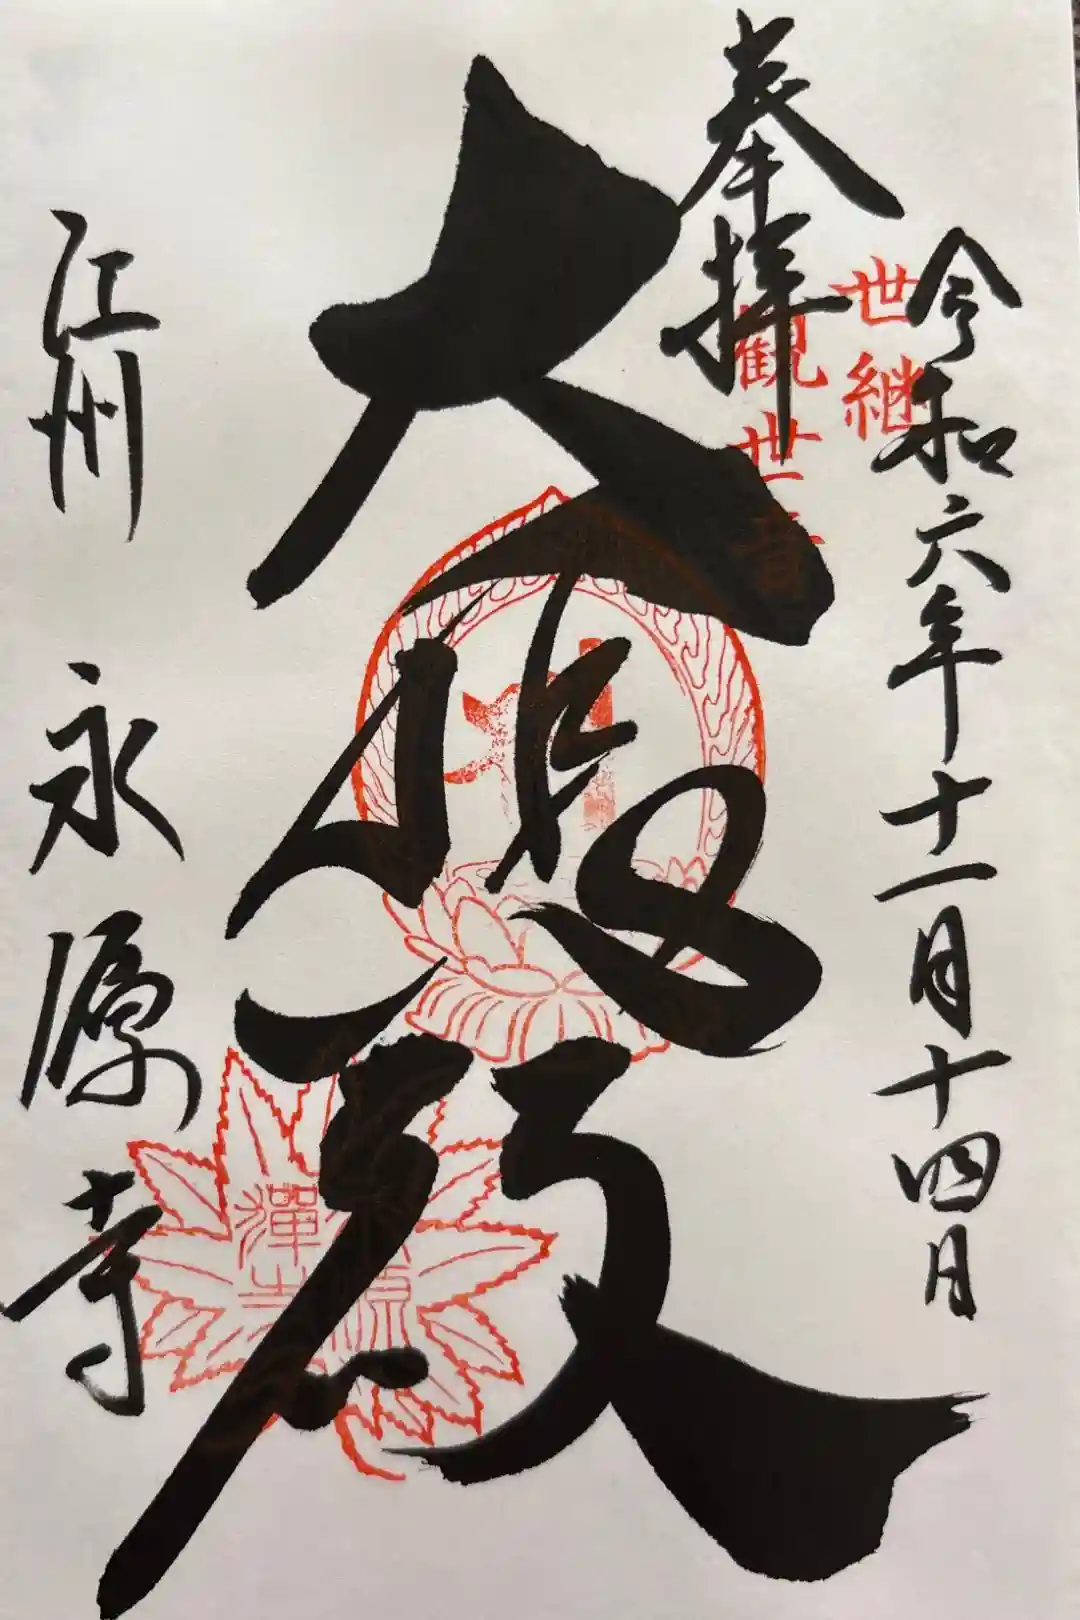 令和六年十一月十四日
世継
観世音
奉拝
大悲殿
江州 永源寺
永源
禅寺